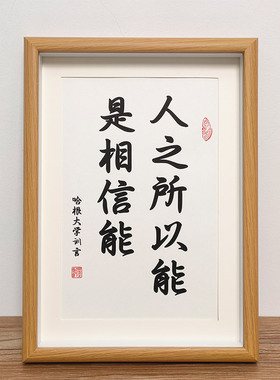 人之所以能
是相信能
哈根大学训言